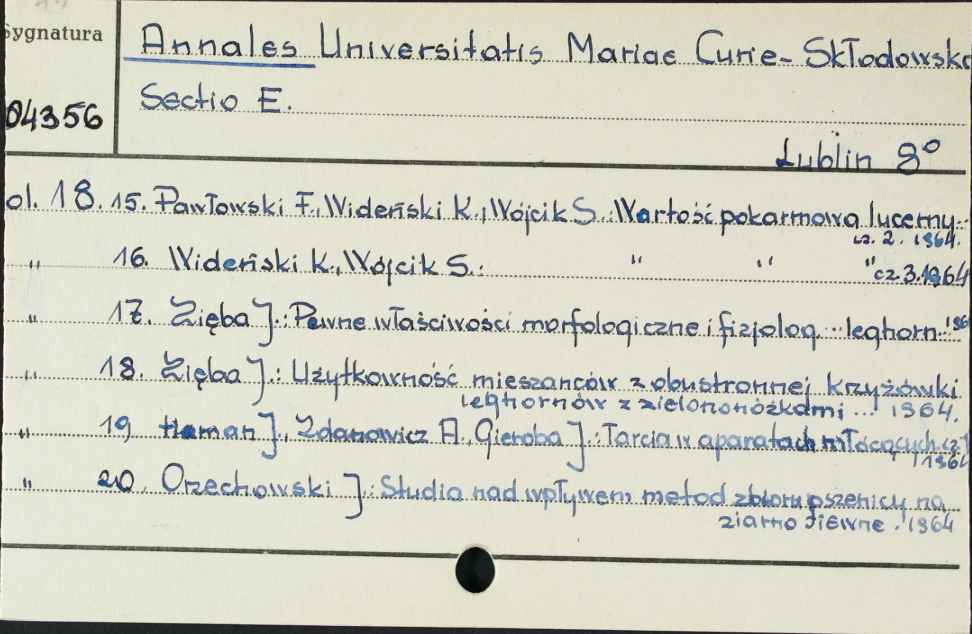 Sygnatura
Annales Universitatis Mariae Curie-Skłodowska
Sectio E.
04356
Lublin 8°
ol. 18. 15. Pawłowski F., Wideński K., Wójcik S.: Wartość pokarmowa lucerny.
cz. 2. 1964.
" 16. Wideński K., Wójcik S.: " " " cz 3. 1964
" 17. Zięba J.: Pewne właściwości morfologiczne i fizjolog. leghorn. 196
" 18. Zięba J.: Użytkowność mieszańców z obustronnej krzyżówki
leghornów z zielononóżkami... 1964.
" 19 Haman J., Zdanowicz A., Gieroba J.: Tarcia w aparatach młócących. cz. 1
1964
" 20. Orzechowski J.: Studia nad wpływem metod zbioru pszenicy na
ziarno siewne. 1964